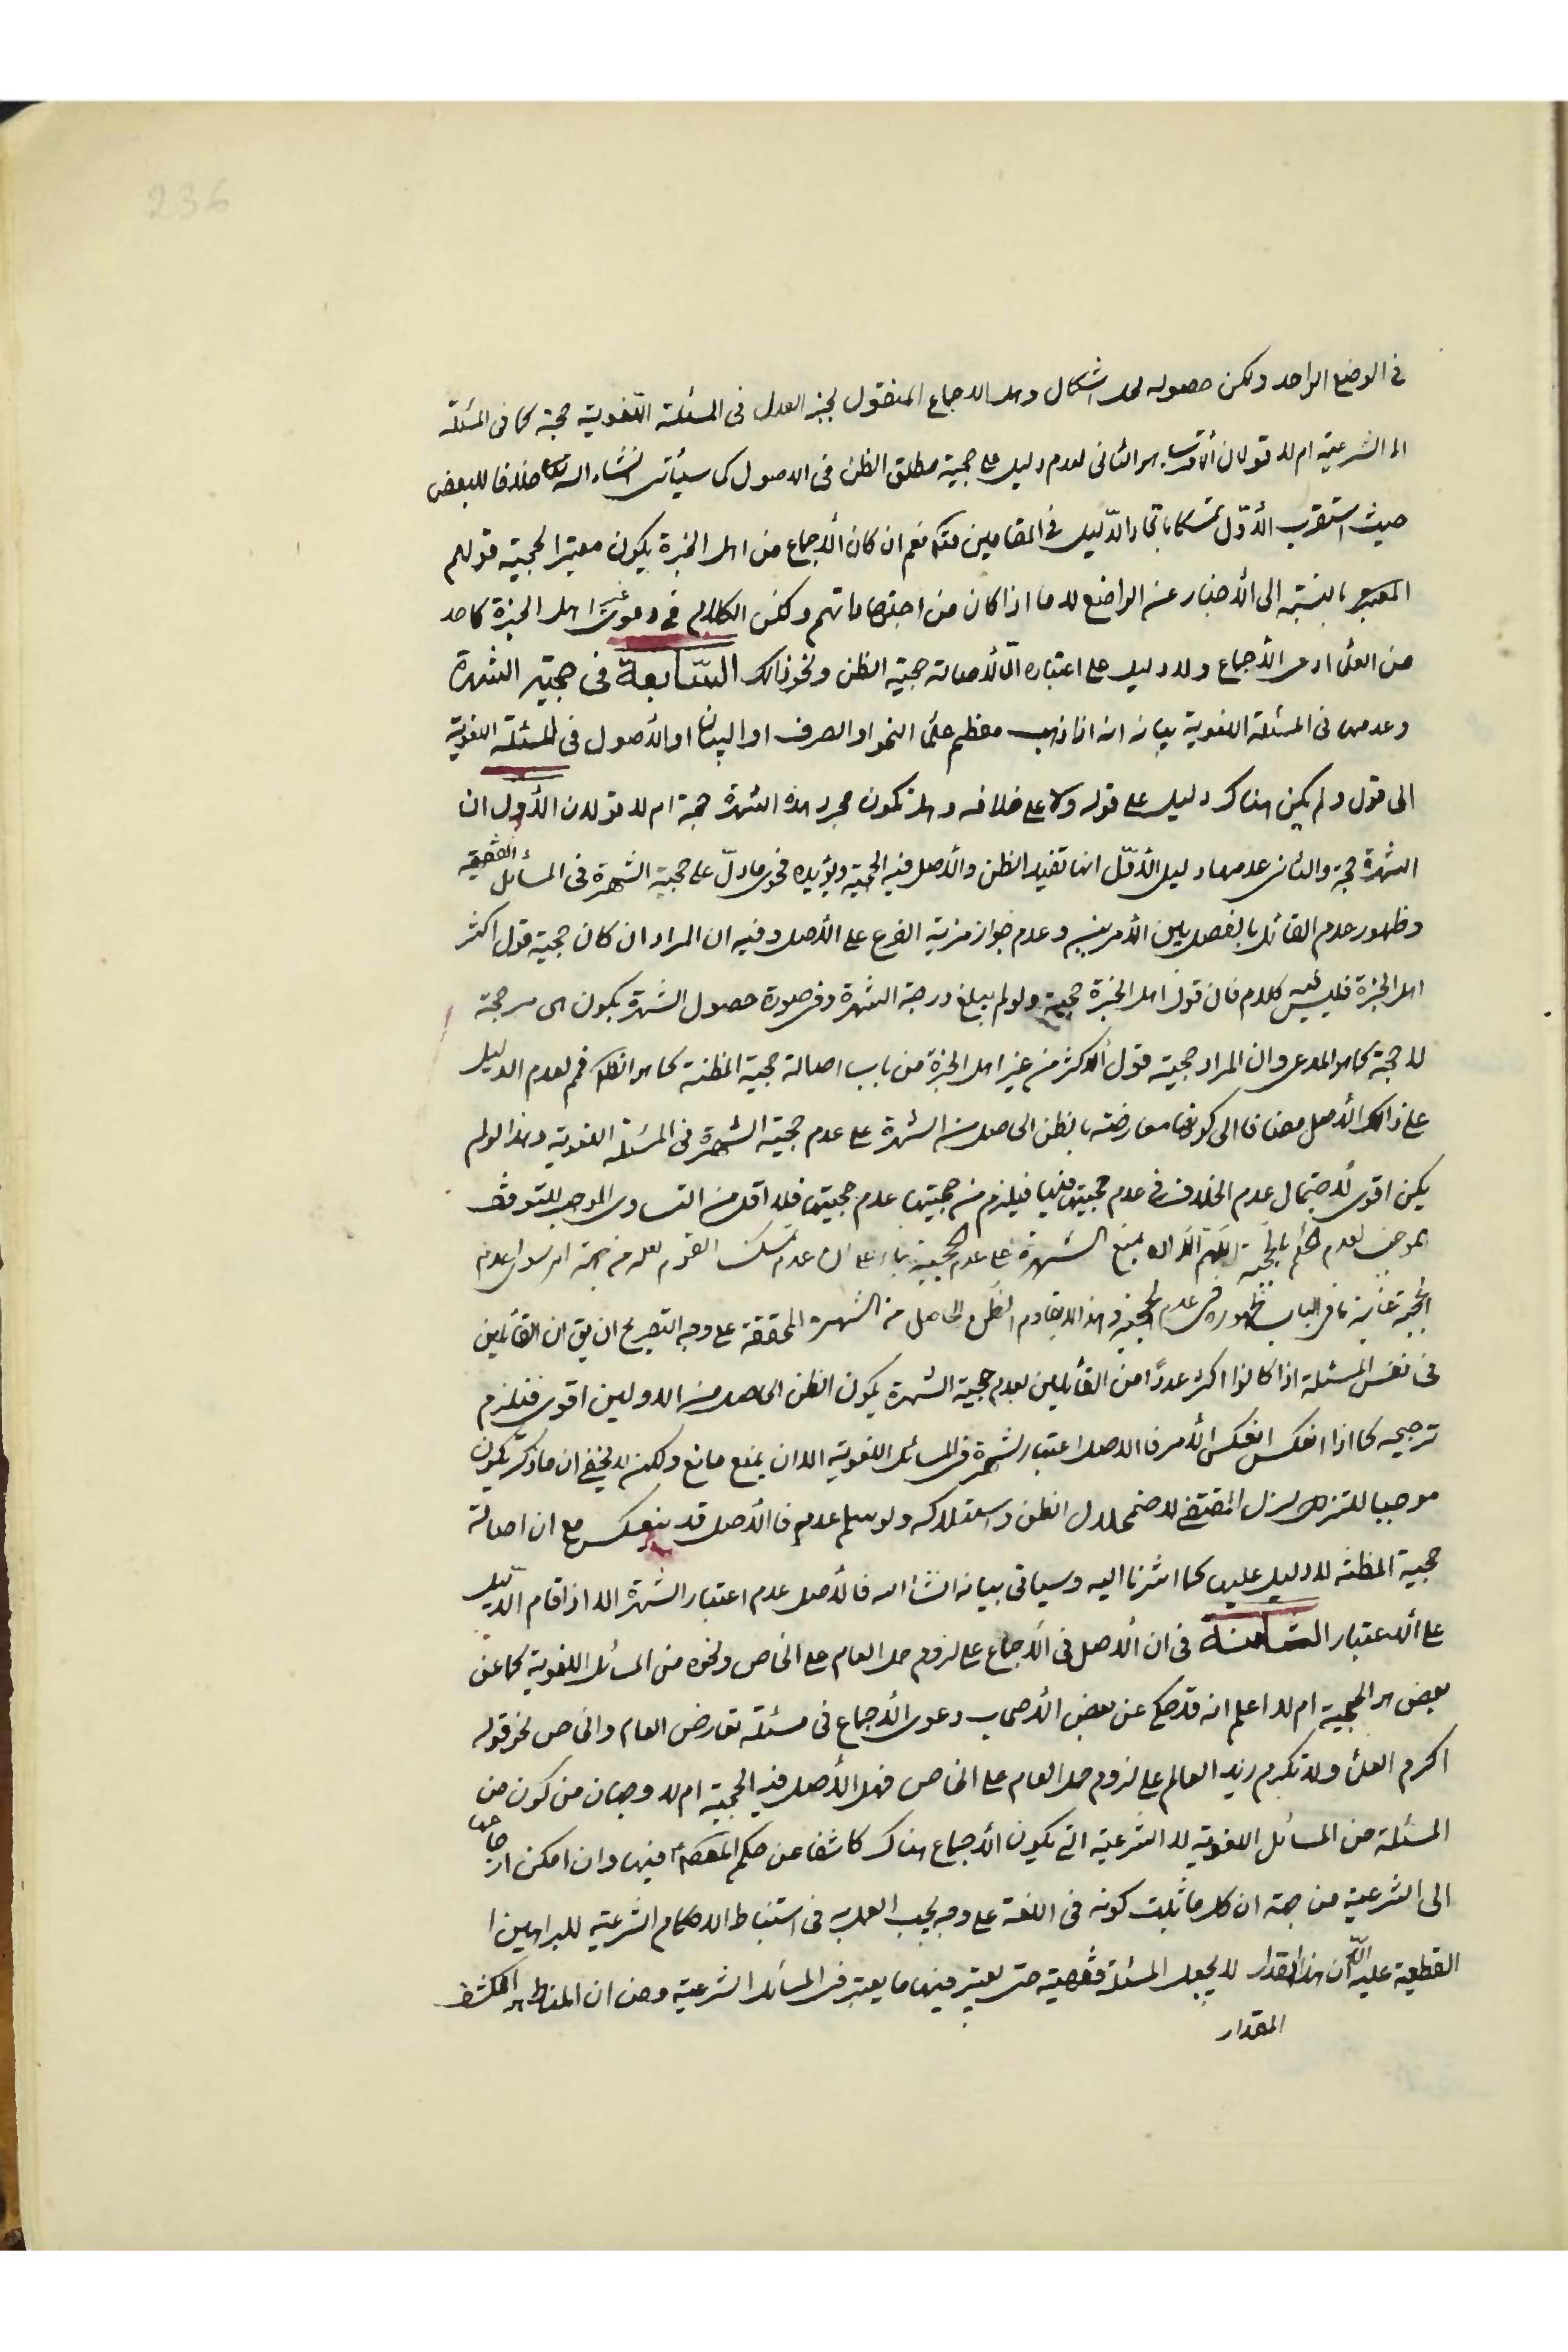 236
في الوضع الواحد ولكن حصوله محل اشكال وهل الاجماع المنقول بخبر العدل في المسئلة اللغوية حجة كما في المسئلة
الشرعية ام لا قولان أقربهما الثاني لعدم دليل على حجية مطلق الظن في الاصول كما سيأتي انشاء الله تعالى خلافا للبعض
حيث استقرب الأوّل تمسكا باتحاد الدّليل في المقامين نعم ان كان الأجماع من اهل الخبرة يكون معتبرا لحجية قولهم
بالنسبة الى الأخبار عن الواضع لا ما اذا كان من اجتهاداتهم ولكن الكلام في دعوى غير اهل الخبرة كاحد
من العلماء الأجماع ولا دليل على اعتباره الّا لأصالة حجية الظن ونحو ذلك السّابعة في حجية الشهرة
وعدمها في المسئلة اللغوية بيانه انه اذا ذهب معظم علماء النحو او الصرف او البيان او الأصول في المسئلة اللغوية
الى قول ولم يكن هناك دليل على قوله ولا على خلافه وهل تكون مجرد هذه الشهرة حجة ام لا قولان الأول ان
الشهرة حجة والثاني عدمها دليل الأوّل انها تفيد الظن والأصل فيه الحجية ويؤيده فحوى ما دلّ على حجية الشهرة في المسائل الفقهية
وظهور عدم القائل بالفصل بين الأمرين وعدم جواز مزية الفرع على الأصل وفيه ان المراد ان كان حجية قول اكثر
اهل الخبرة فليس فيه كلام فان قول اهل الخبرة حجة ولو لم يبلغ درجة الشهرة وفي صورة حصول الشهرة يكون هى مرجحة
لا حجة كما هو المدعى وان المراد حجية قول الأكثر من غير اهل الخبرة من باب اصالة حجية المظنة كما هو الظاهر فمم لعدم الدليل
على ذلك الأصل مضافا الى كونها معارضة بالظن الحاصل من الشهرة على عدم حجية الشهرة في المسئلة اللغوية وهذا لو لم
يكن اقوى لأحتمال عدم الخلاف في عدم حجيتها فيها فيلزم من حجيتها عدم حجيتها فلا اقل من التساوى الموجب للتوقف
الموجب لعدم الحكم بالحجية اللهم الّا ان يمنع الشهرة على عدم الحجية بناء على ان عدم تمسك القوم لعله من جهة
الحجية غاية ما في الباب ظهوره في عدم الحجية وهذا لا يقاوم الظن الحاصل من الشهرة المحققة على وجه التصريح ان يق ان القائلين
في نفس المسئلة اذا كانوا اكثر عددًا من القائلين بعدم حجية الشهرة يكون الظن الحاصل من الاولين اقوى فيلزم
ترجيحه كما اذا انعكس انعكس الأمر فالاصل اعتبار الشهرة في المسائل اللغوية الا ان يمنع مانع ولكن لا يخفى ان ما ذكر يكون
موجبا للتزلزل المقتضى لاضمحلال الظن واستهلاكه ولو سلم عدمه فالأصل قد ينعكس مع ان اصالة
حجية المظنة لا دليل عليها كما اشرنا اليه وسياتي بيانه انشاء الله فالأصل عدم اعتبار الشهرة الا اذا قام الدّليل
على الأعتبار الثامنة في ان الأصل في الأجماع على لزوم حمل العام على الخاص ونحوه من المسائل اللغوية كما عن
بعض هو الحجية ام لا اعلم انه قد حكى عن بعض الأصحاب دعوى الأجماع في مسئلة تعارض العام والخاص نحو قوله
اكرم العلماء ولا تكرم زيد العالم على لزوم حمل العام على الخاص فهل الأصل فيه الحجية ام لا وجهان من كون
المسئلة من المسائل اللغوية لا الشرعية التي يكون الأجماع هناك كاشفا عن حكم المعصوم فيها وان امكن ارجاعها
الى الشرعية من جهة ان كل ما ثبت كونه في اللغة على وجه يجب العمل به في استنباط الاحكام الشرعية للبراهين
القطعية عليه الّا ان هذا المقدار لا يجعل المسئلة فقهية حتى يعتبر فيها ما يعتبر في المسائل الشرعية ومن ان المناط هو الكشف
المقدار